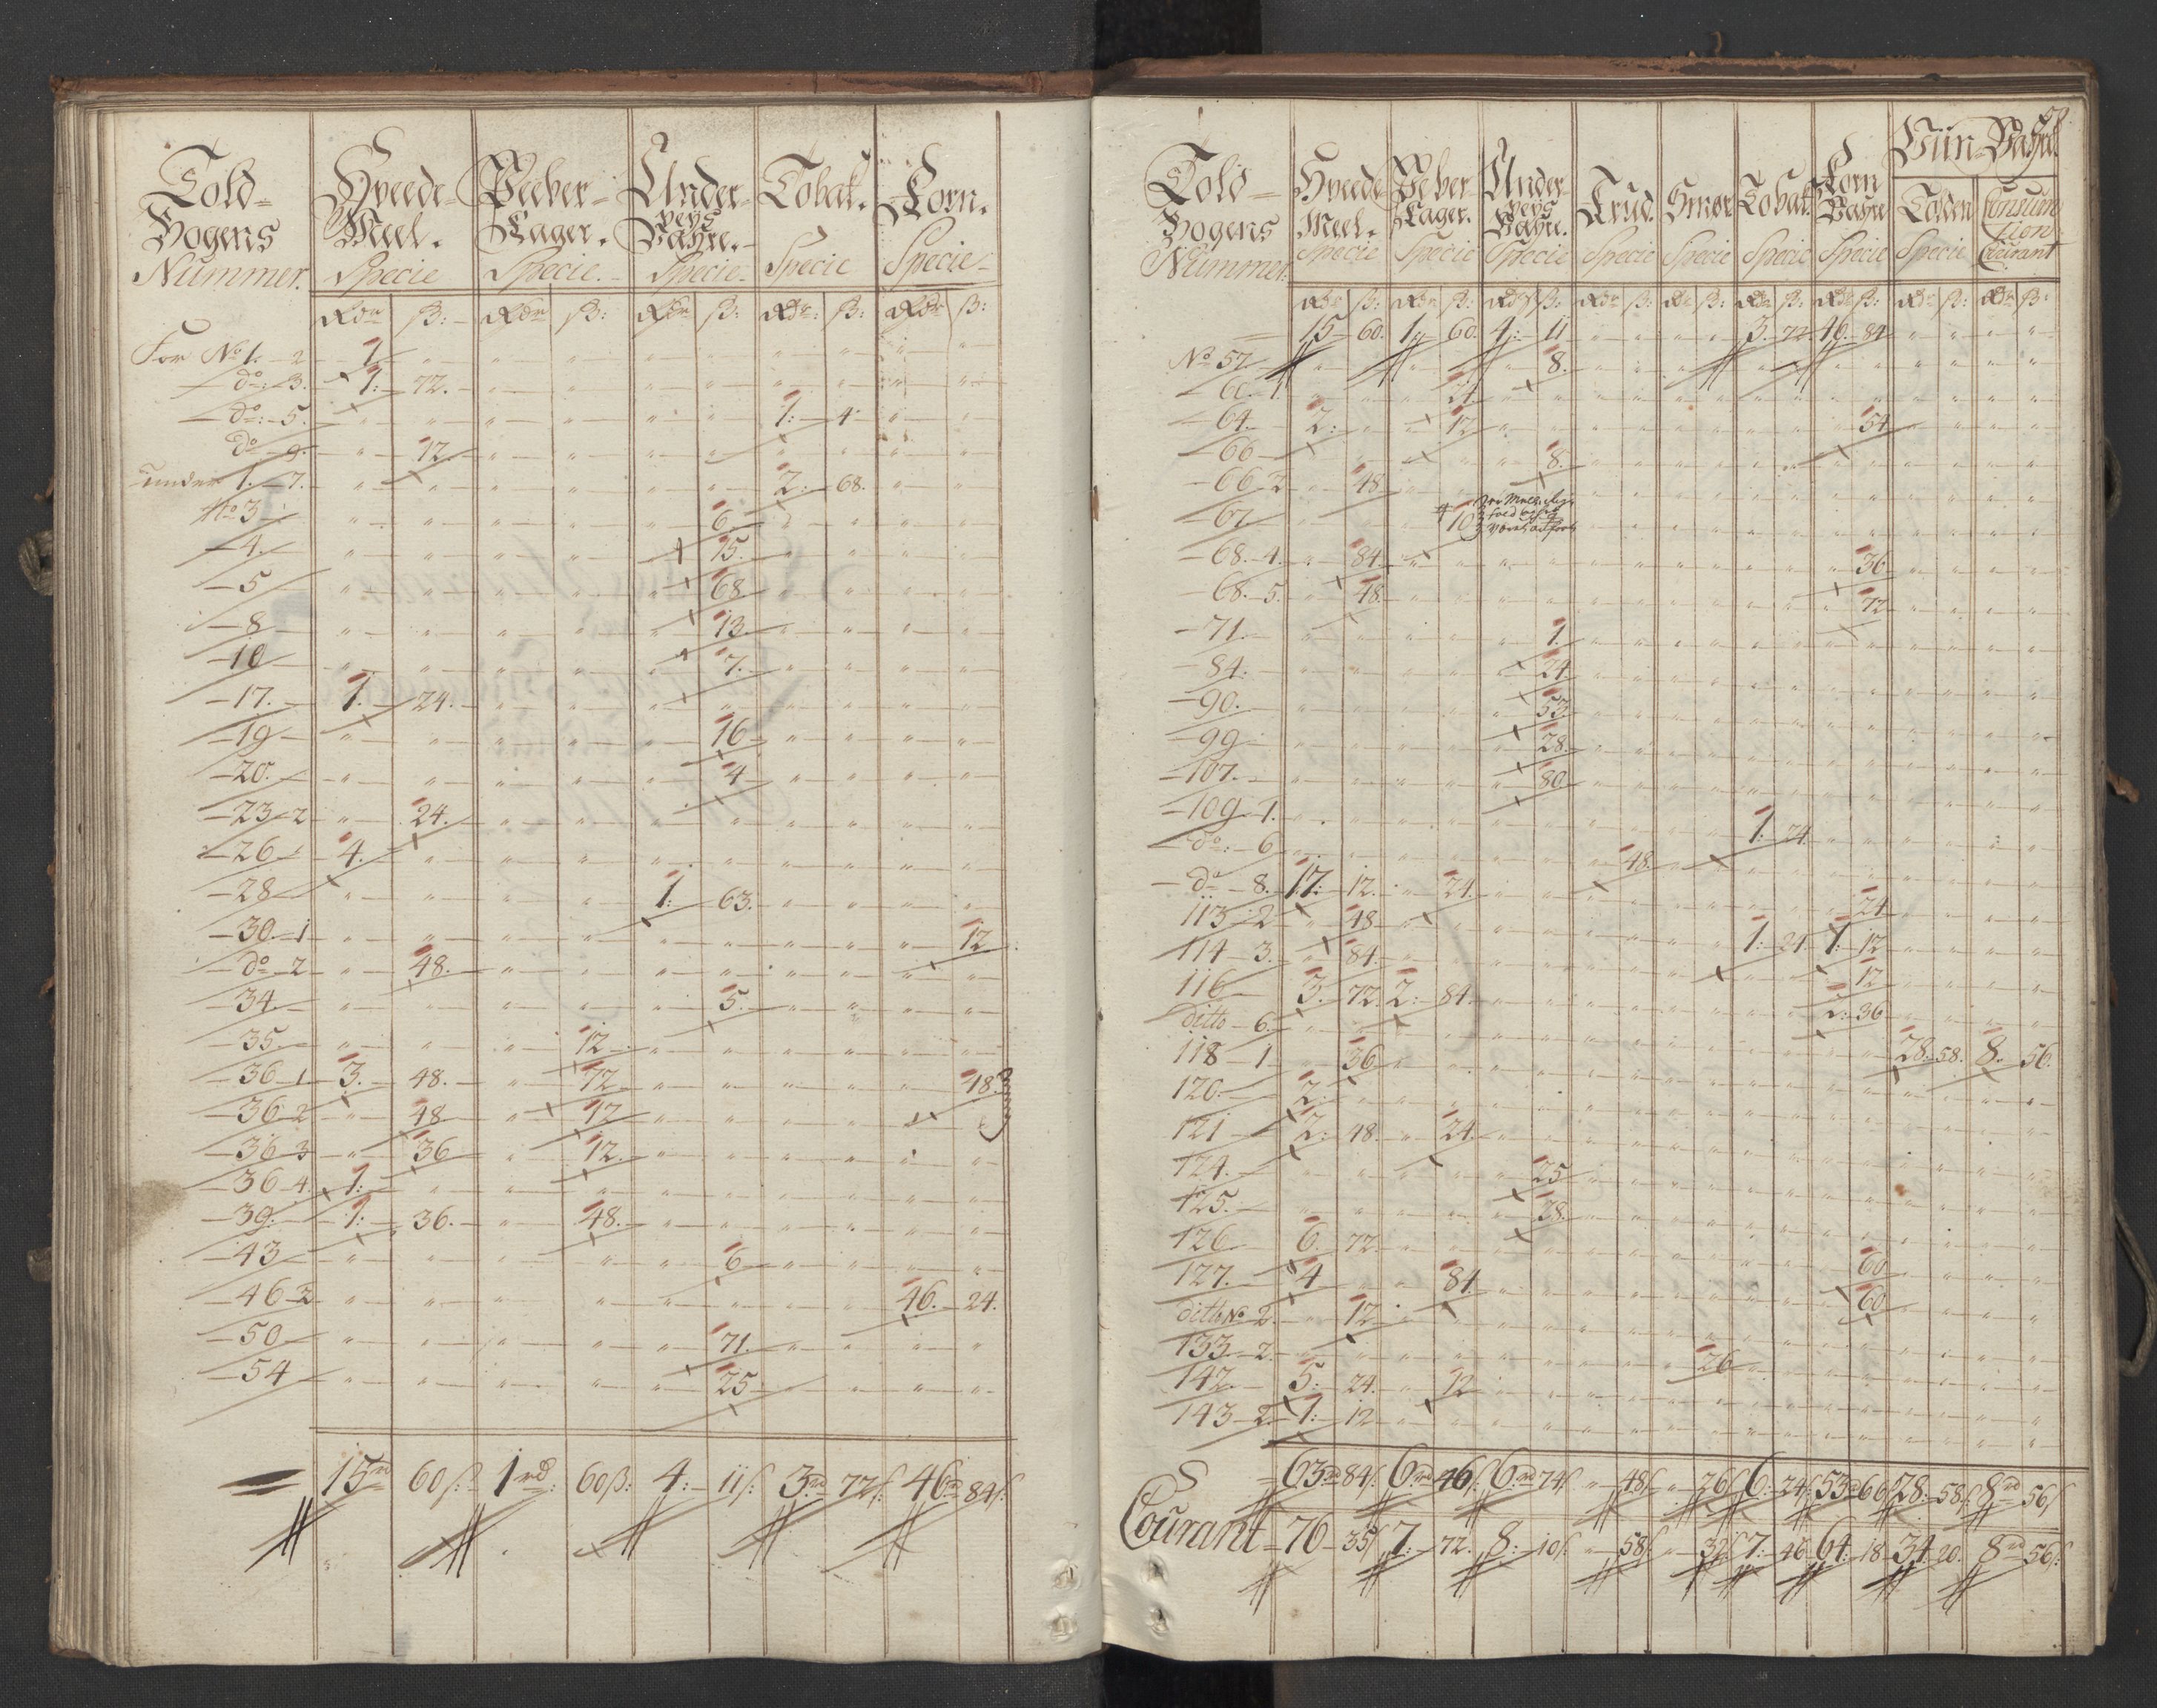 Told-
Bogens
Nummer.
Hveede-
Meel.
Specie
Peeber-
Kager.
Specie.
Under-
veys
Vahre.
Specie
Tobak.
Specie
Korn.
Specie
Rdr ß: Rdr ß: Rdr ß: Rdr ß: Rdr ß:
For No 1. - 2 1.
do: 3. 1: 72.
do: 5. 1: 4
do 9. 12.
under 1. 7. 2: 68.
No 3 6.
4. 15.
5 68
8 13.
10 7.
17. 1. 24.
19 16
20. 4
23 2 24.
26 4.
28 1: 63.
30. 1 12
do 2 48.
34. 5.
35. 12
36 1 3. 48. 72 18.
36 2 48 12
36 3 36 12.
36 4 1:
39. 1: 36. 48.
43 6
46 2 46. 24.
50 71.
54 25
15rd 60ß 1rd: 60ß: 4: 11ß. 3rd 72ß: 46rd 84ß.
Told-
Bogens
Nummer.
Hveede
Meel.
Specie
Peber
Kager.
Specie
Under-
veys
Vahre.
Specie
Krud.
Specie
Smør
Specie
Tobak.
Specie
Korn
Vahre
Specie
Viin-Vahre.
Tolden
Specie
Consum
tion
Courant
Rdr ß: Rdr ß: Rdr ß: Rdr ß: Rdr ß: Rdr ß: Rdr ß: Rdr ß: Rdr ß:
15 60. 1 60. 4: 11 3. 72 46. 84
No 57 8.
60. 1. 24.
64. 2: 12 54
66 8.
66 2 48
67 10
68. 4. 84. 36
68. 5. 48. 72
71. 1.
84. 24.
90. 53
99 28.
107. 80
109 1. 1: 24.
do: 6 48.
do 8. 17: 12. 24. 24
113 2 48 1: 24 1: 12
114 3. 84. 12
116 3. 72. 2: 84. 2: 36
ditto 6. 28. 58. 8. 56.
118 1 36
120. 2:
121 2: 48. 24.
124. 25
125. 28.
126 6. 72. 60
127. 4 84. 60
ditto No 2. 12
133. 2. 26
142. 5: 24. 12
143 2. 1: 12
63rd 84ß. 6rd 46ß. 6rd 74ß 48ß 26ß 6. 24ß 53rd 66 28: 58ß. 8rd 56ß
Courant 76 35ß 7. 72. 8: 10ß 58ß 32ß 7. 46 64: 18 34 20. 8rd 56ß.